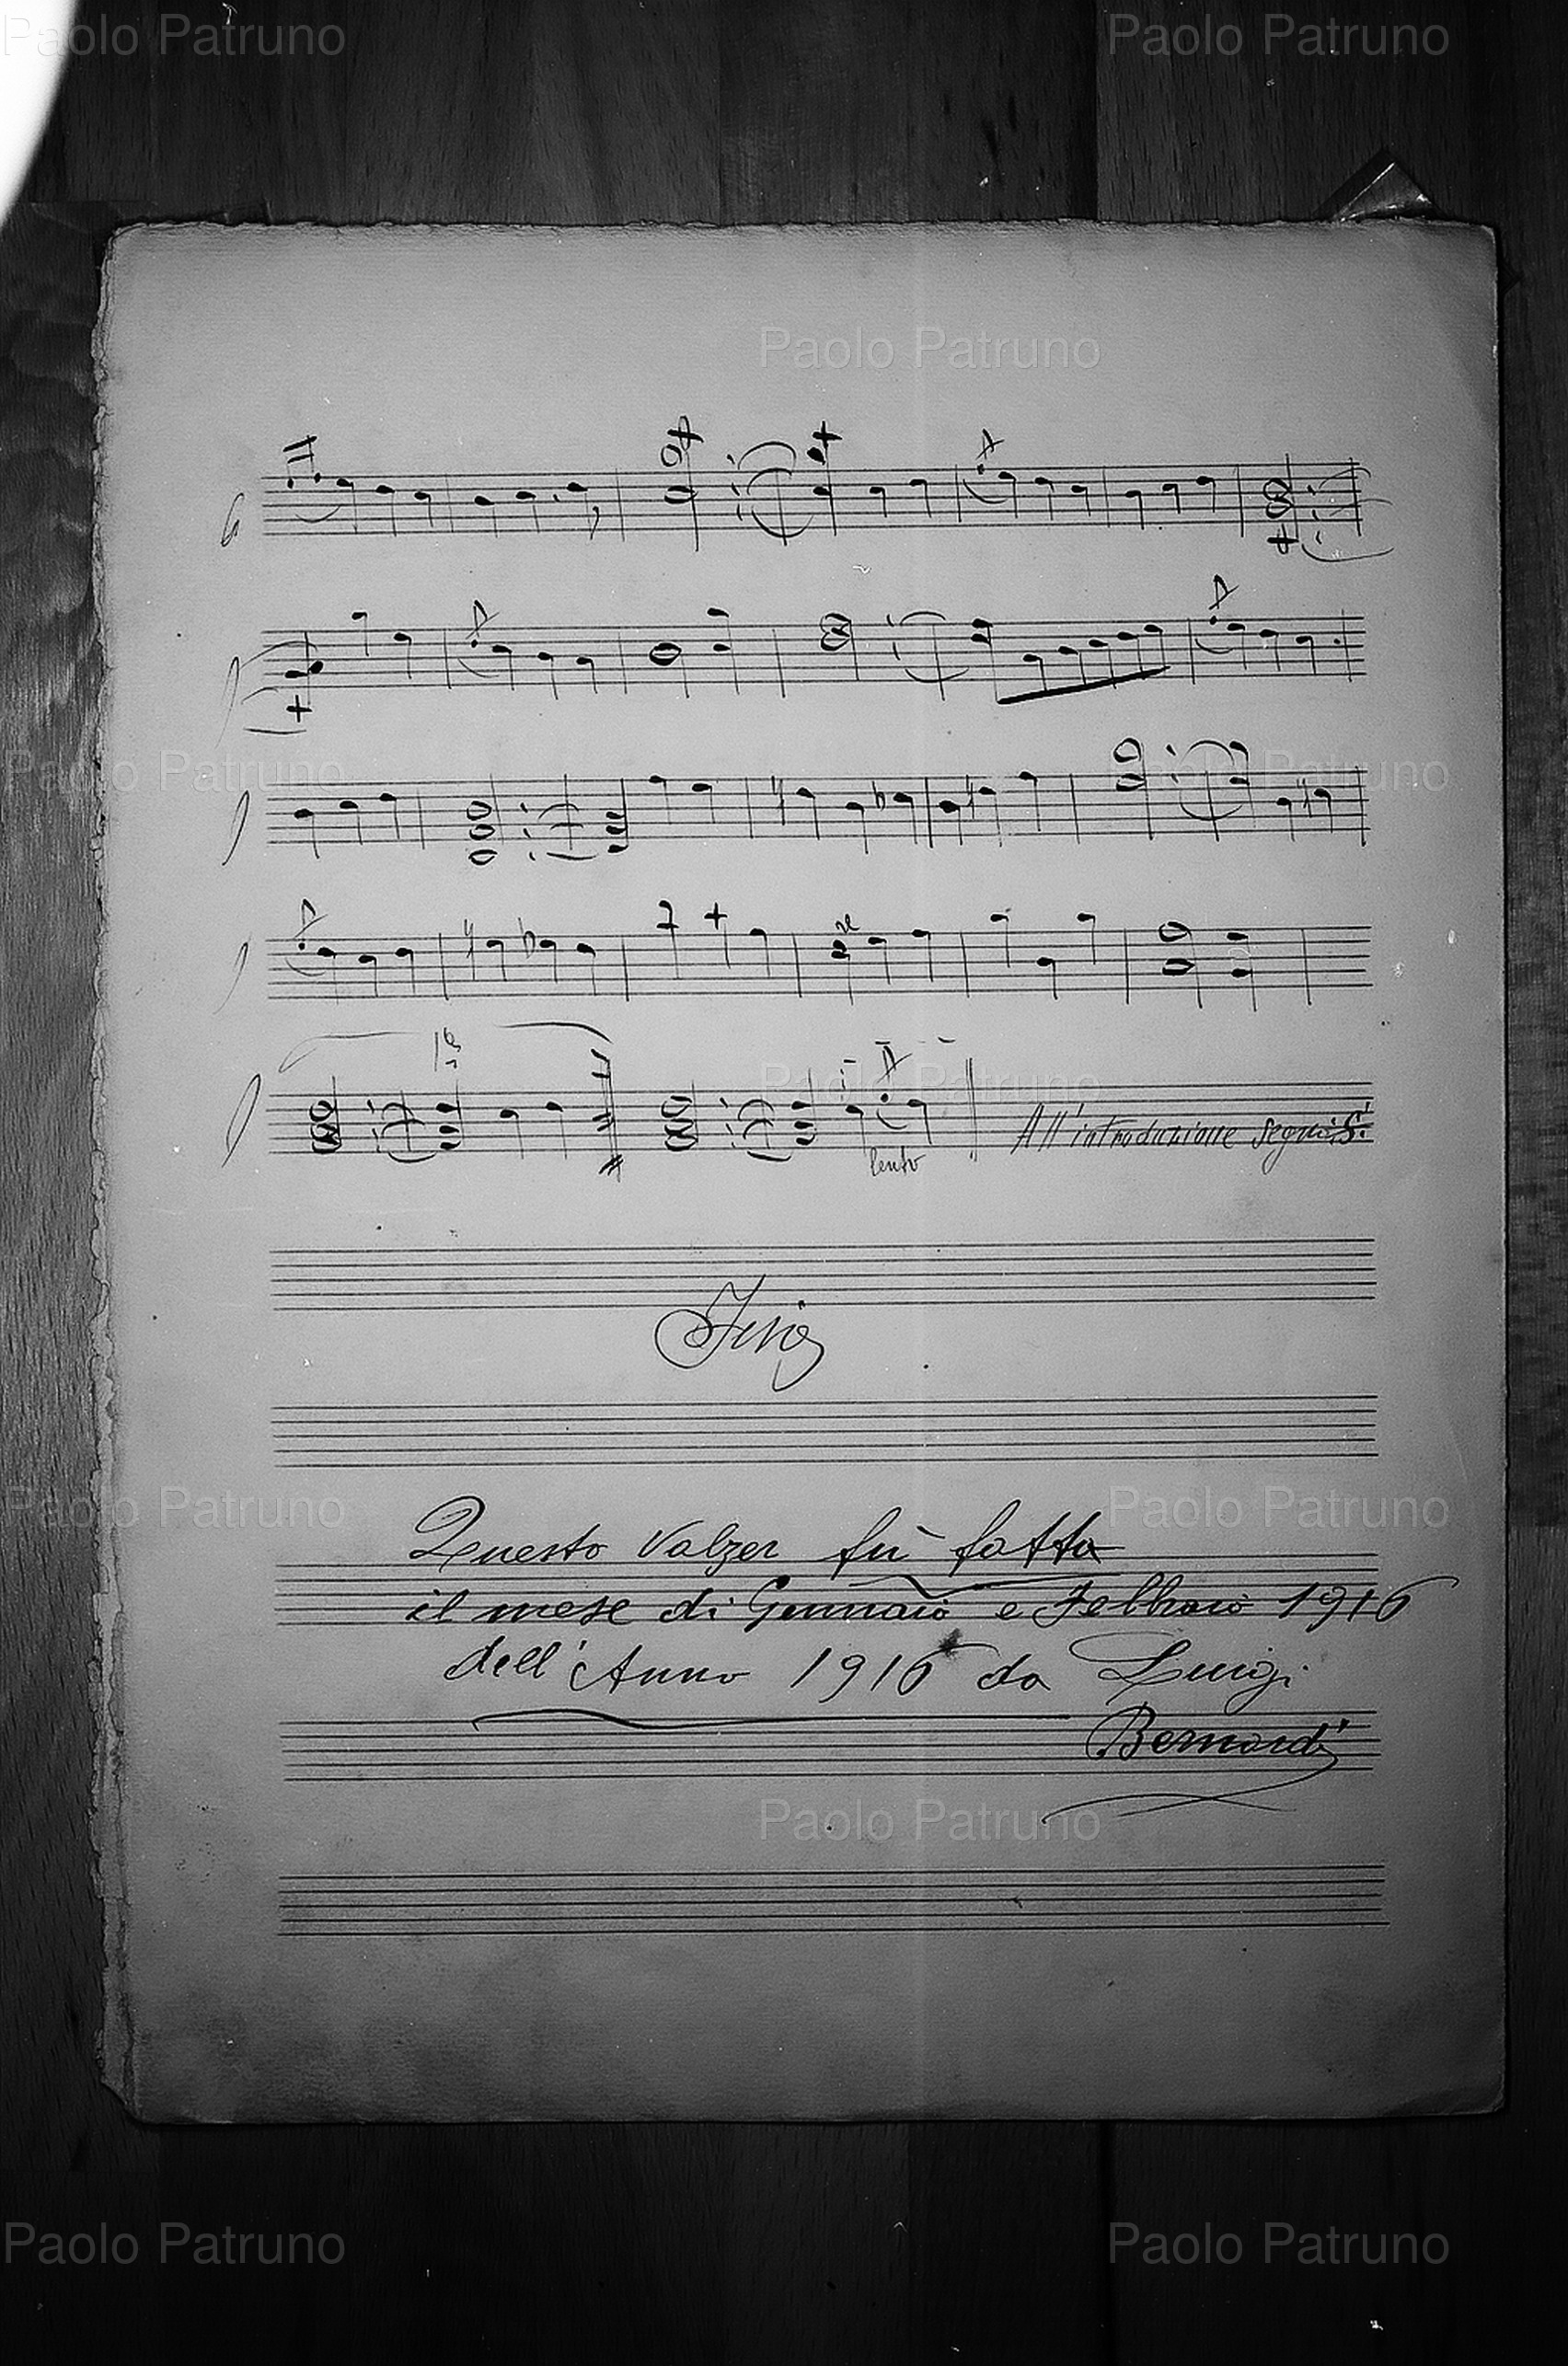 Paolo Patruno Paolo Patruno
Paolo Patruno
Paolo Patruno Paolo Patruno
Paolo Patruno
lento
All'introduzione segno S.
Fine
Paolo Patruno Paolo Patruno
Questo Valzer fù fatto
il mese di Gennaio e Febbraio 1916
dell'Anno 1916 da Luigi
Bernardi
Paolo Patruno
Paolo Patruno Paolo Patruno